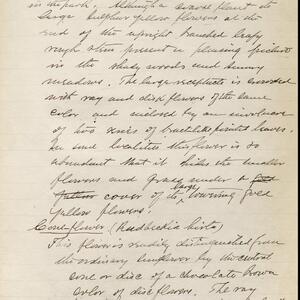 in the park. Although a coarse plant its
large sulphur yellow flowers at the
end of the upright branched leafy
rough stem present a pleasing picture
in the shady woods and sunny
meadows. The large receptacle is crowded
with ray and disk flowers of the same
color and enclosed by an involucre
of two series of bractlike pointed leaves.
In some localities this flower is so
abundant that it hides the smaller
flowers and grass under a
cover of the large towering
yellow flowers.
Coneflower (Rudbeckia hirta)
This flower is readily distinguished from
the ordinary sunflower by the central
cone or disc of a chocolate brown
color of disc flowers. The ray